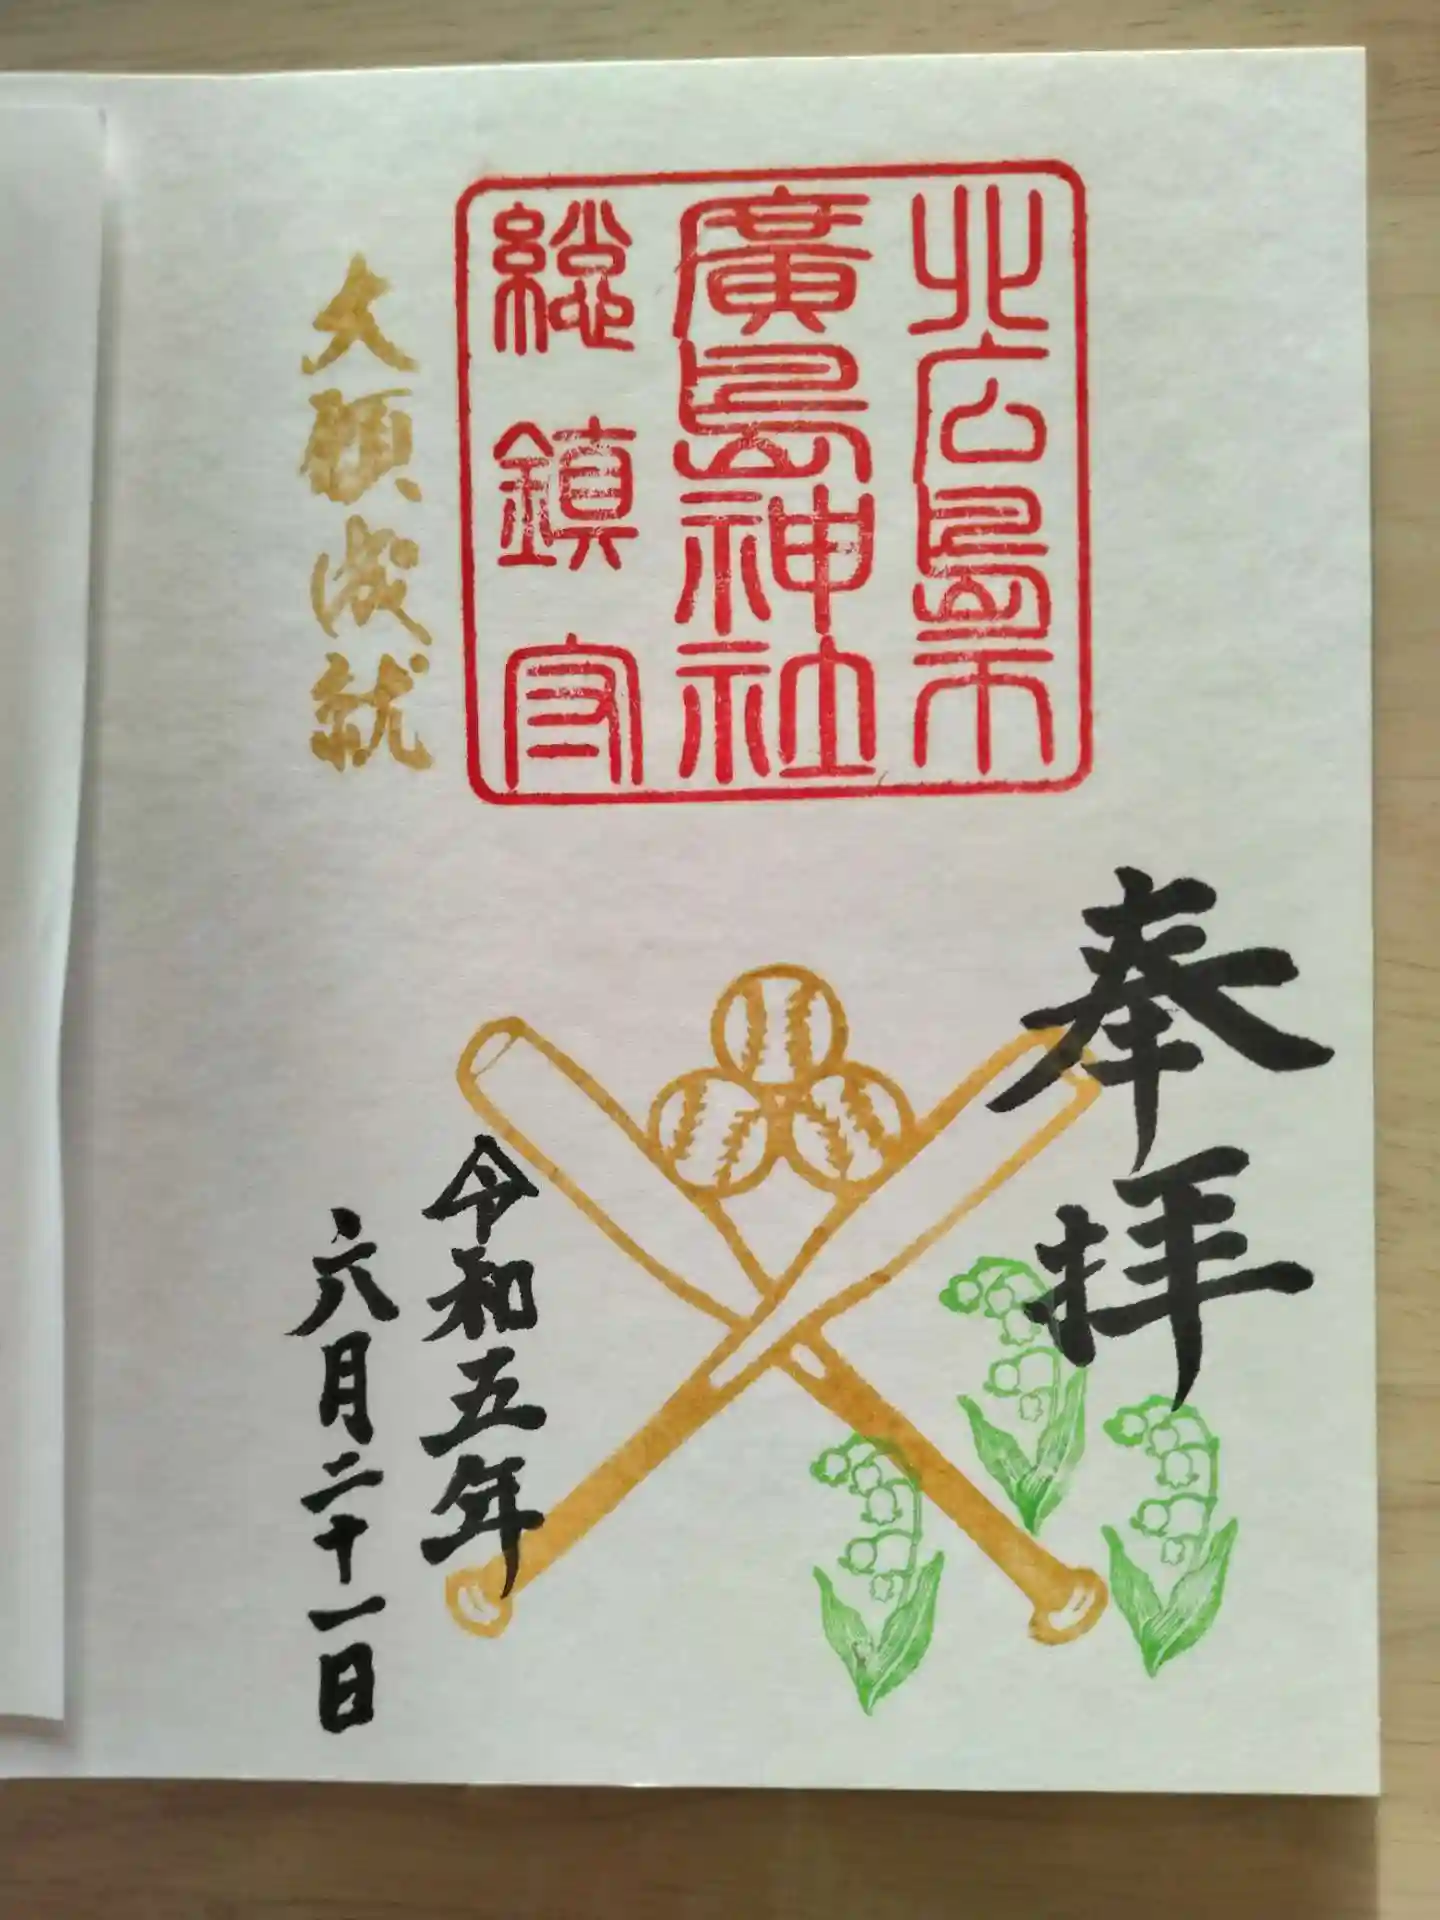 北広島市
廣島神社
総鎮守
大願成就
奉拝
令和五年
六月二十一日